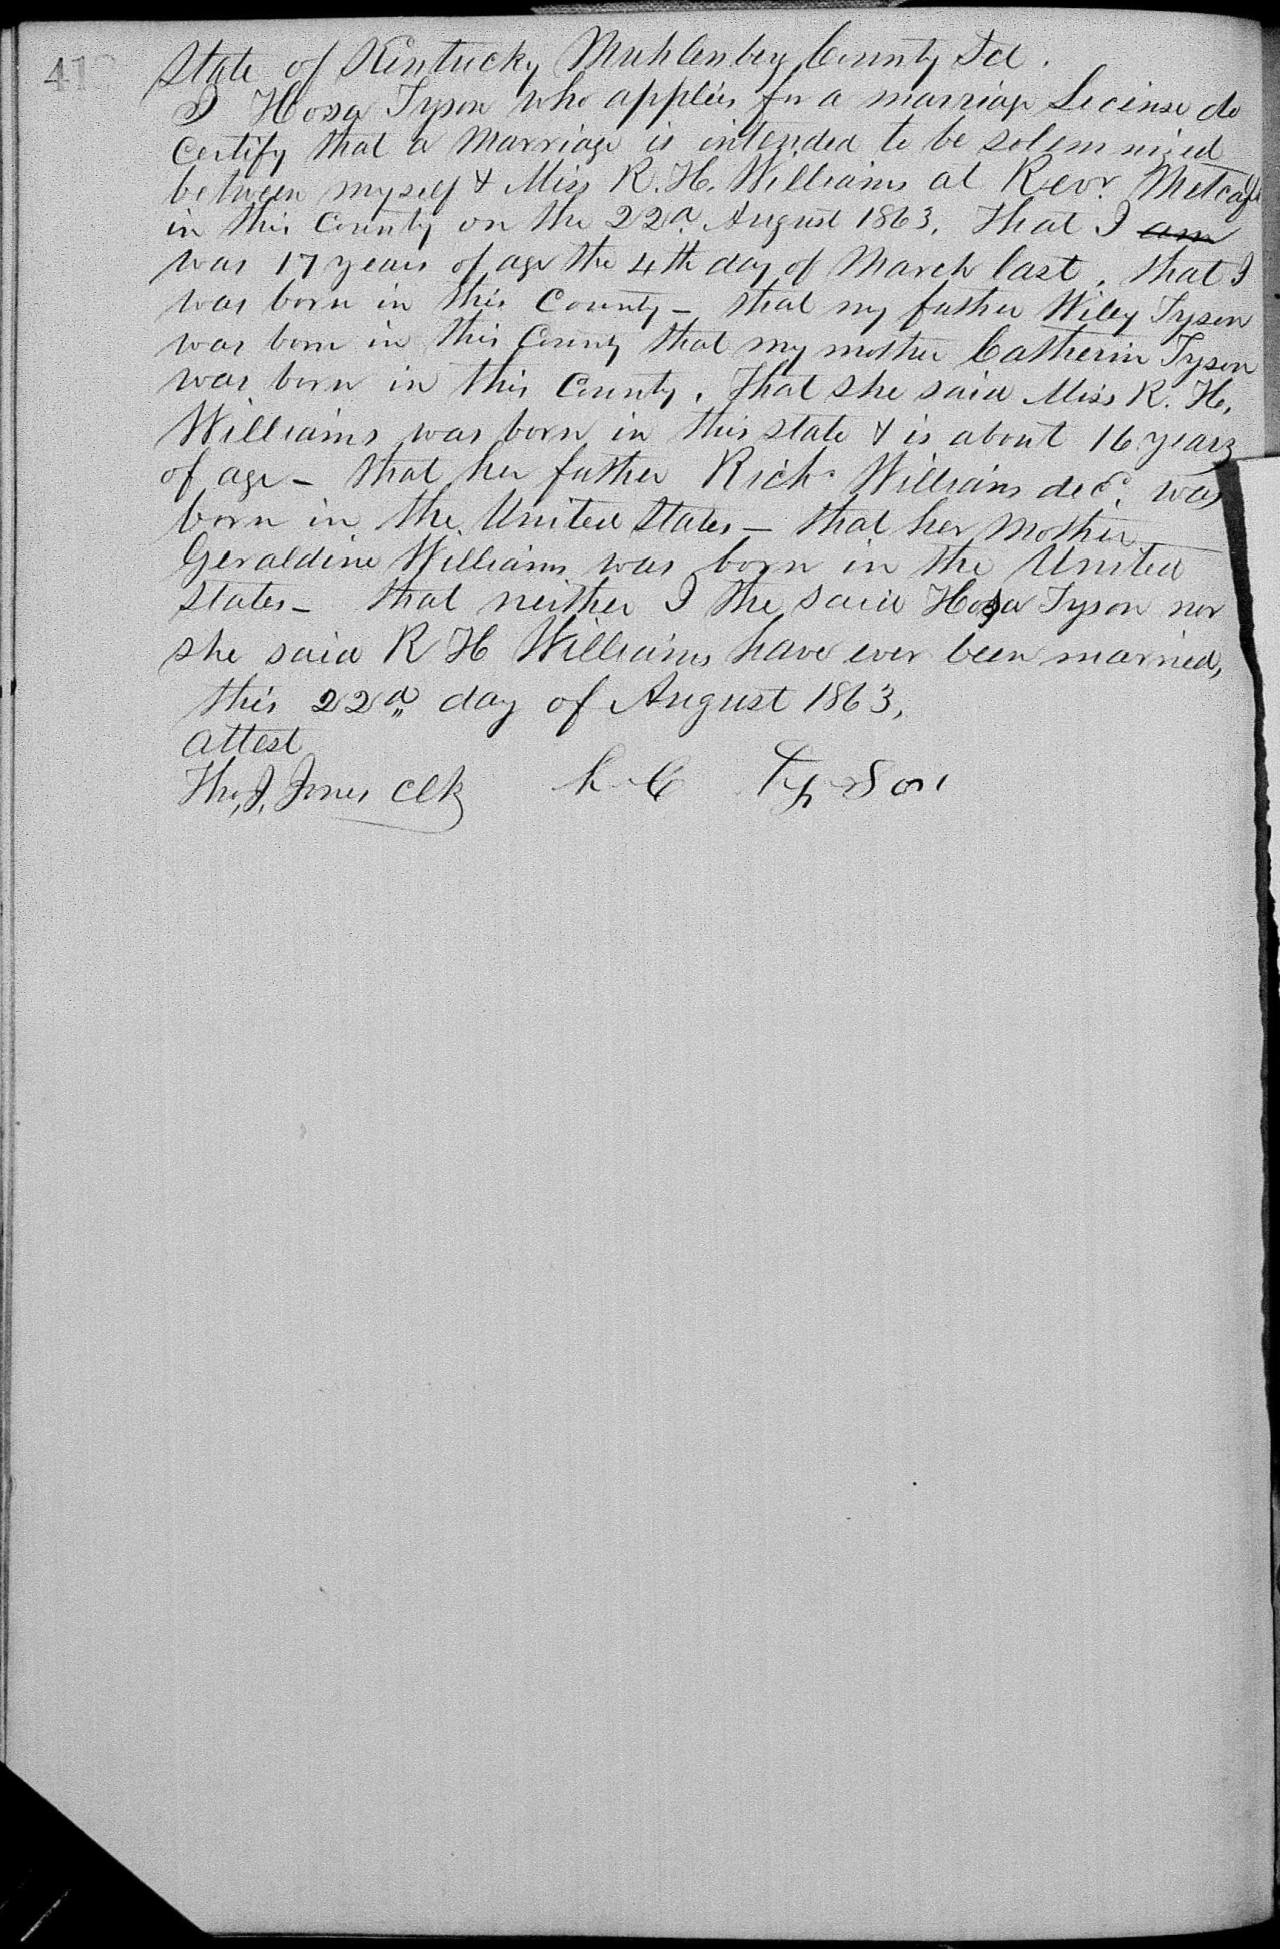 41
State of Kentucky Muhlenberg County Sct.
I Hosa Tyson who applies for a marriage License do
Certify that a Marriage is intended to be solemnized
between myself & Miss R. H. Williams at Revr. Metcalfs
in this County on the 22d. August 1863. That I am
was 17 years of age the 4th day of March last, that I
was born in this County - that my father Wiley Tyson
was born in this County that my mother Catherin Tyson
was born in this County. That she said Miss R. H.
Williams was born in this state & is about 16 years
of age - that her father Rich. Williams decd. was
born in the United States - that her mother
Geraldine Williams was born in the United
States - that neither I the said Hosa Tyson nor
she said R H Williams have ever been married,
this 22d day of August 1863,
attest
Tho. J. Jones Clk Tyson